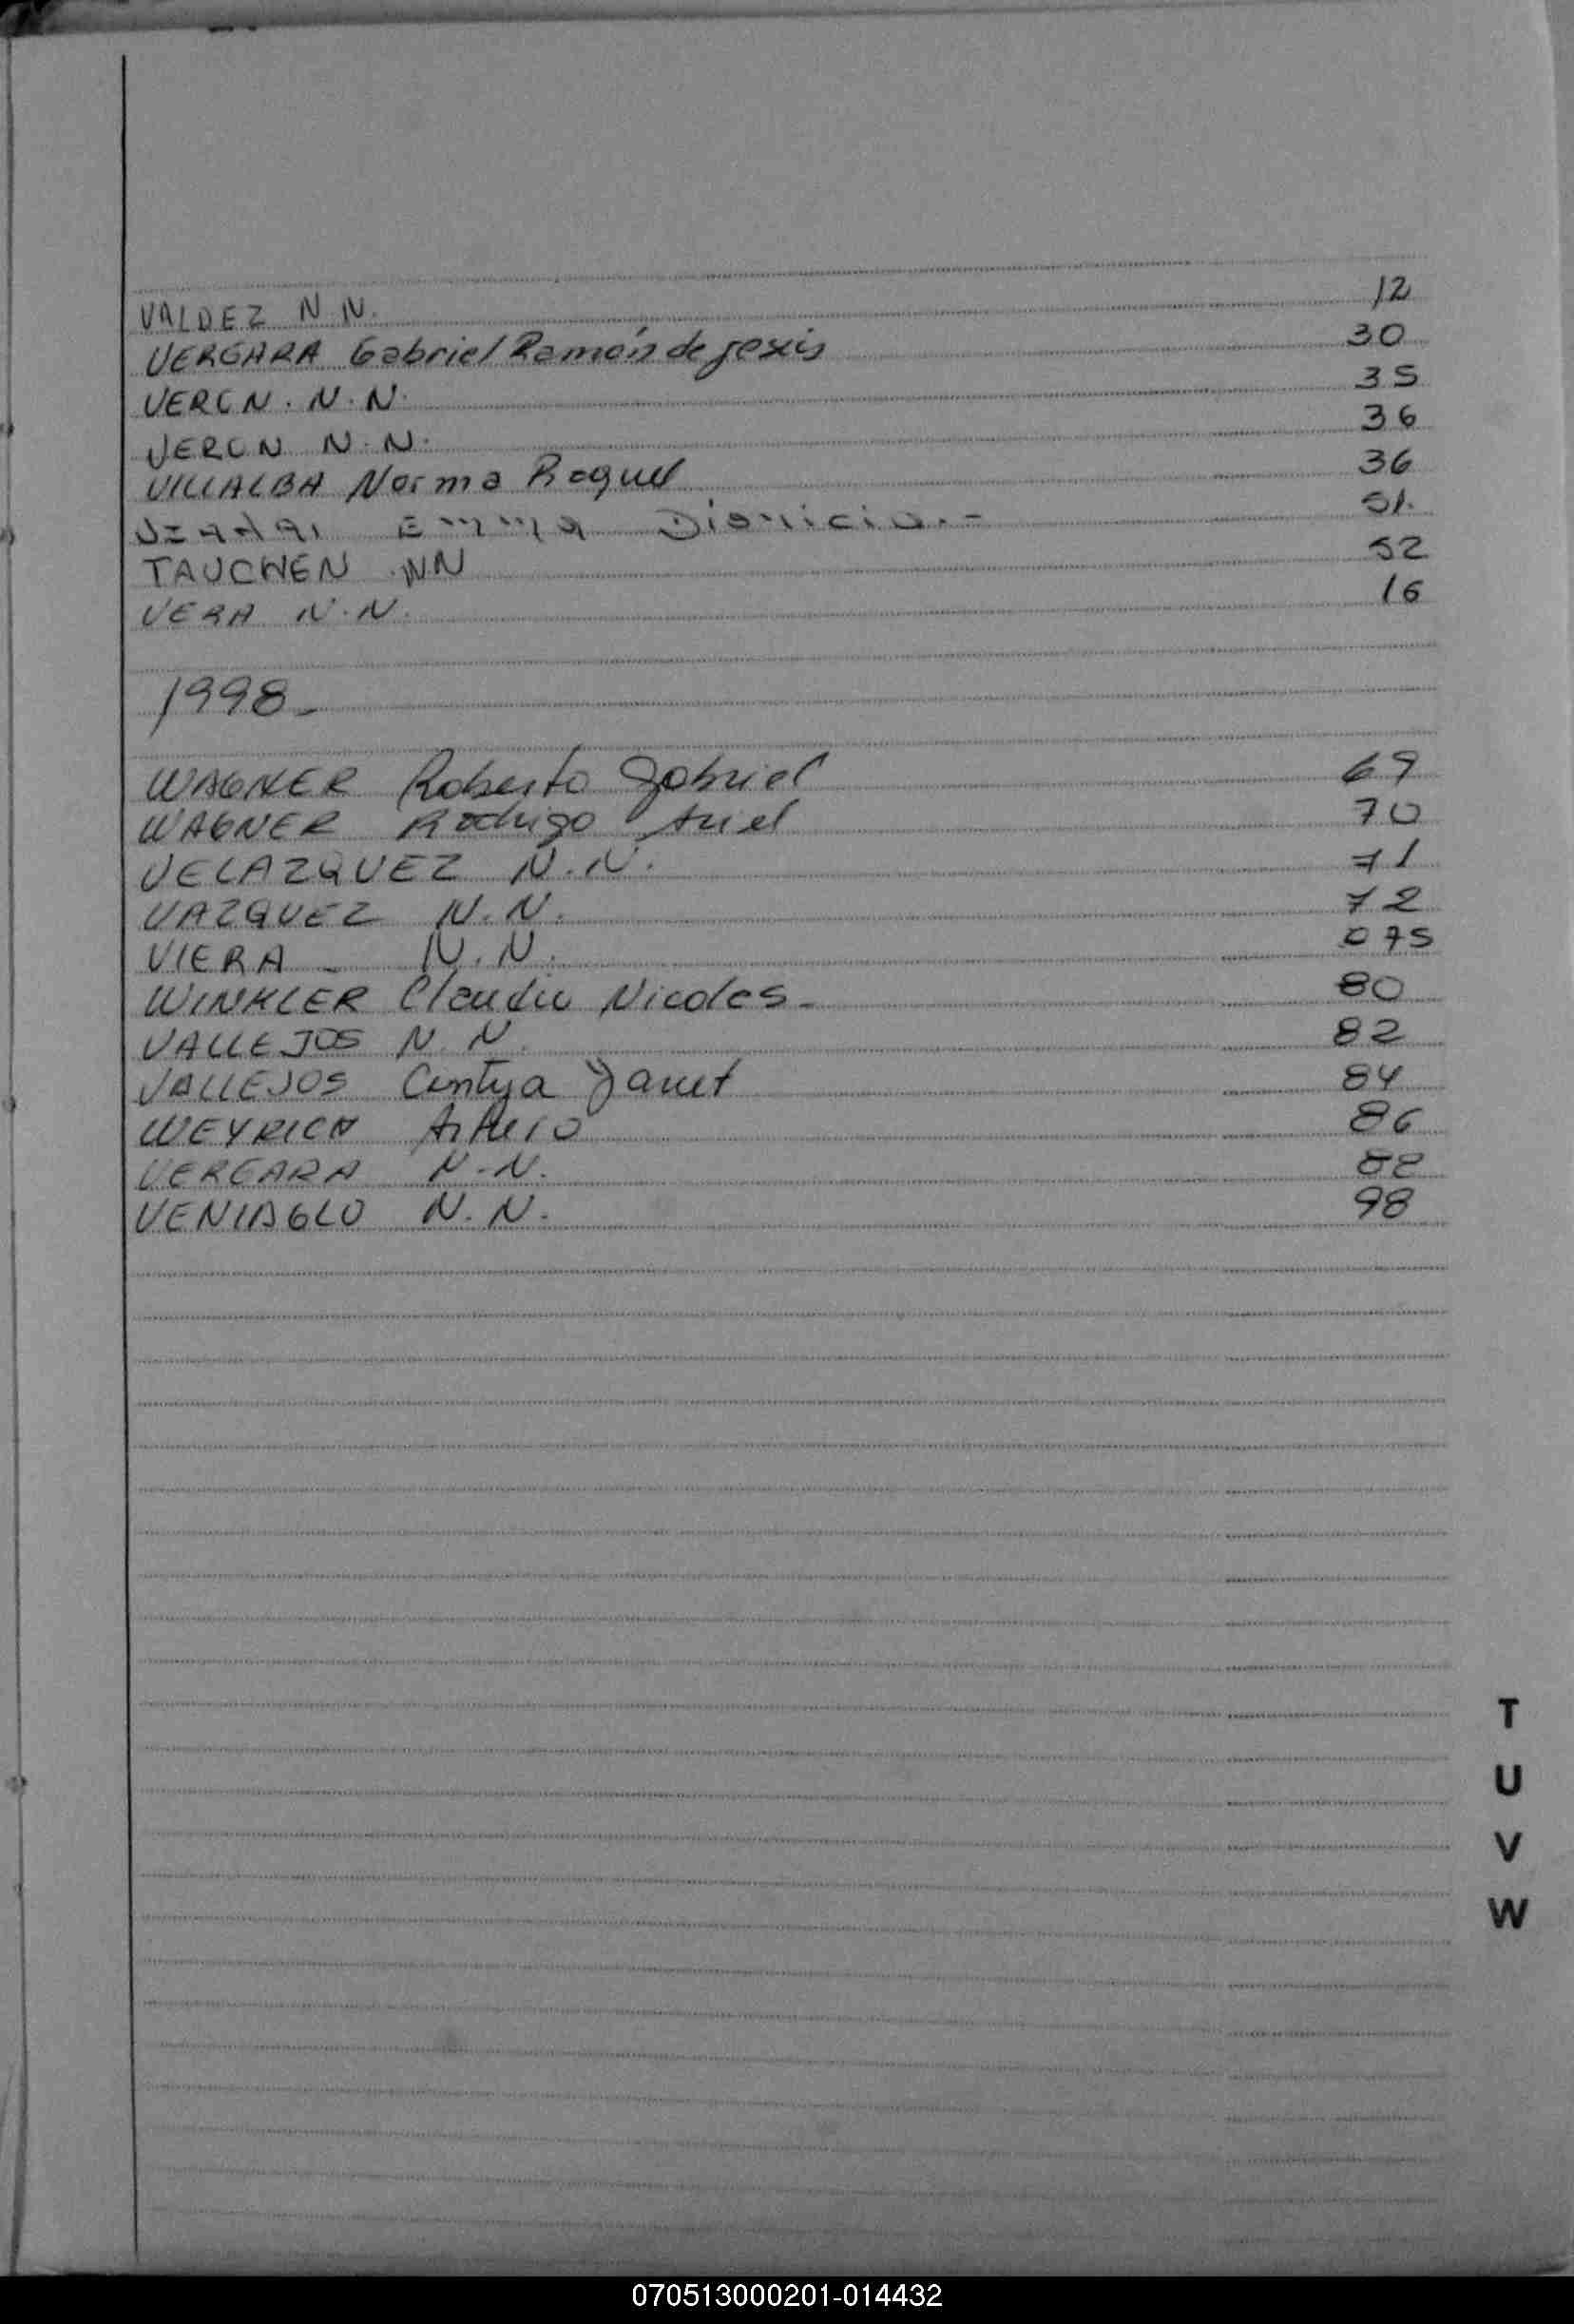 VALDEZ N N. 12
VERGARA Gabriel Ramón de Jesús 30
VERON. N. N. 35
VERON N. N. 36
VILLALBA Norma Raquel 36
Dionicia.- 51.
TAUCHEN NN 52
VERA N. N. 16
1998-
WAGNER Roberto Gabriel 69
WAGNER Rodrigo Ariel 70
VELAZQUEZ N. N. 71
VAZQUEZ N. N. 72
VIERA - N. N. 075
WINKLER Claudio Nicolas- 80
VALLEJOS N. N. 82
VALLEJOS Cintya Janet 84
WEYRICH Arturo 86
VERGARA N-N. 88
VENIAGLO N. N. 98
T
U
V
W
070513000201-014432